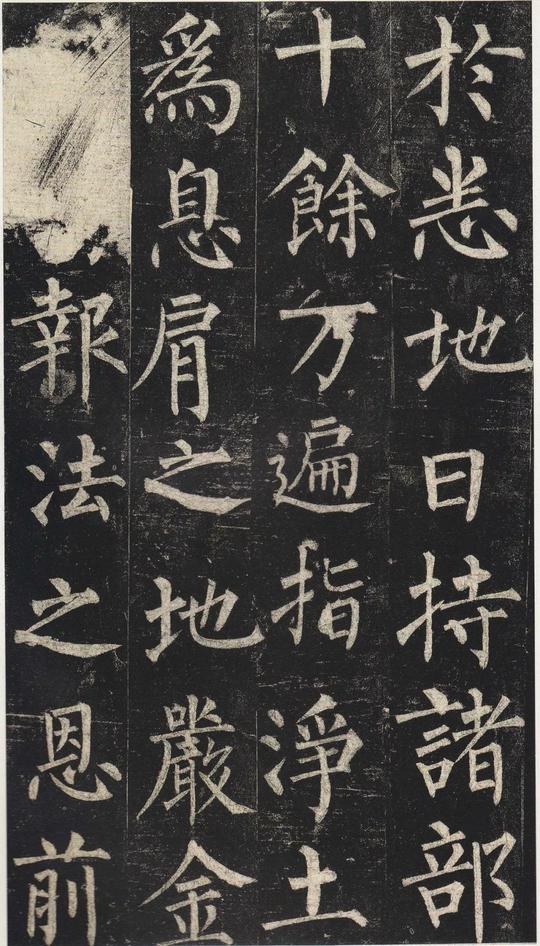 於恚地日持諸部
十餘万遍指淨土
為息肩之地嚴金
報法之恩前